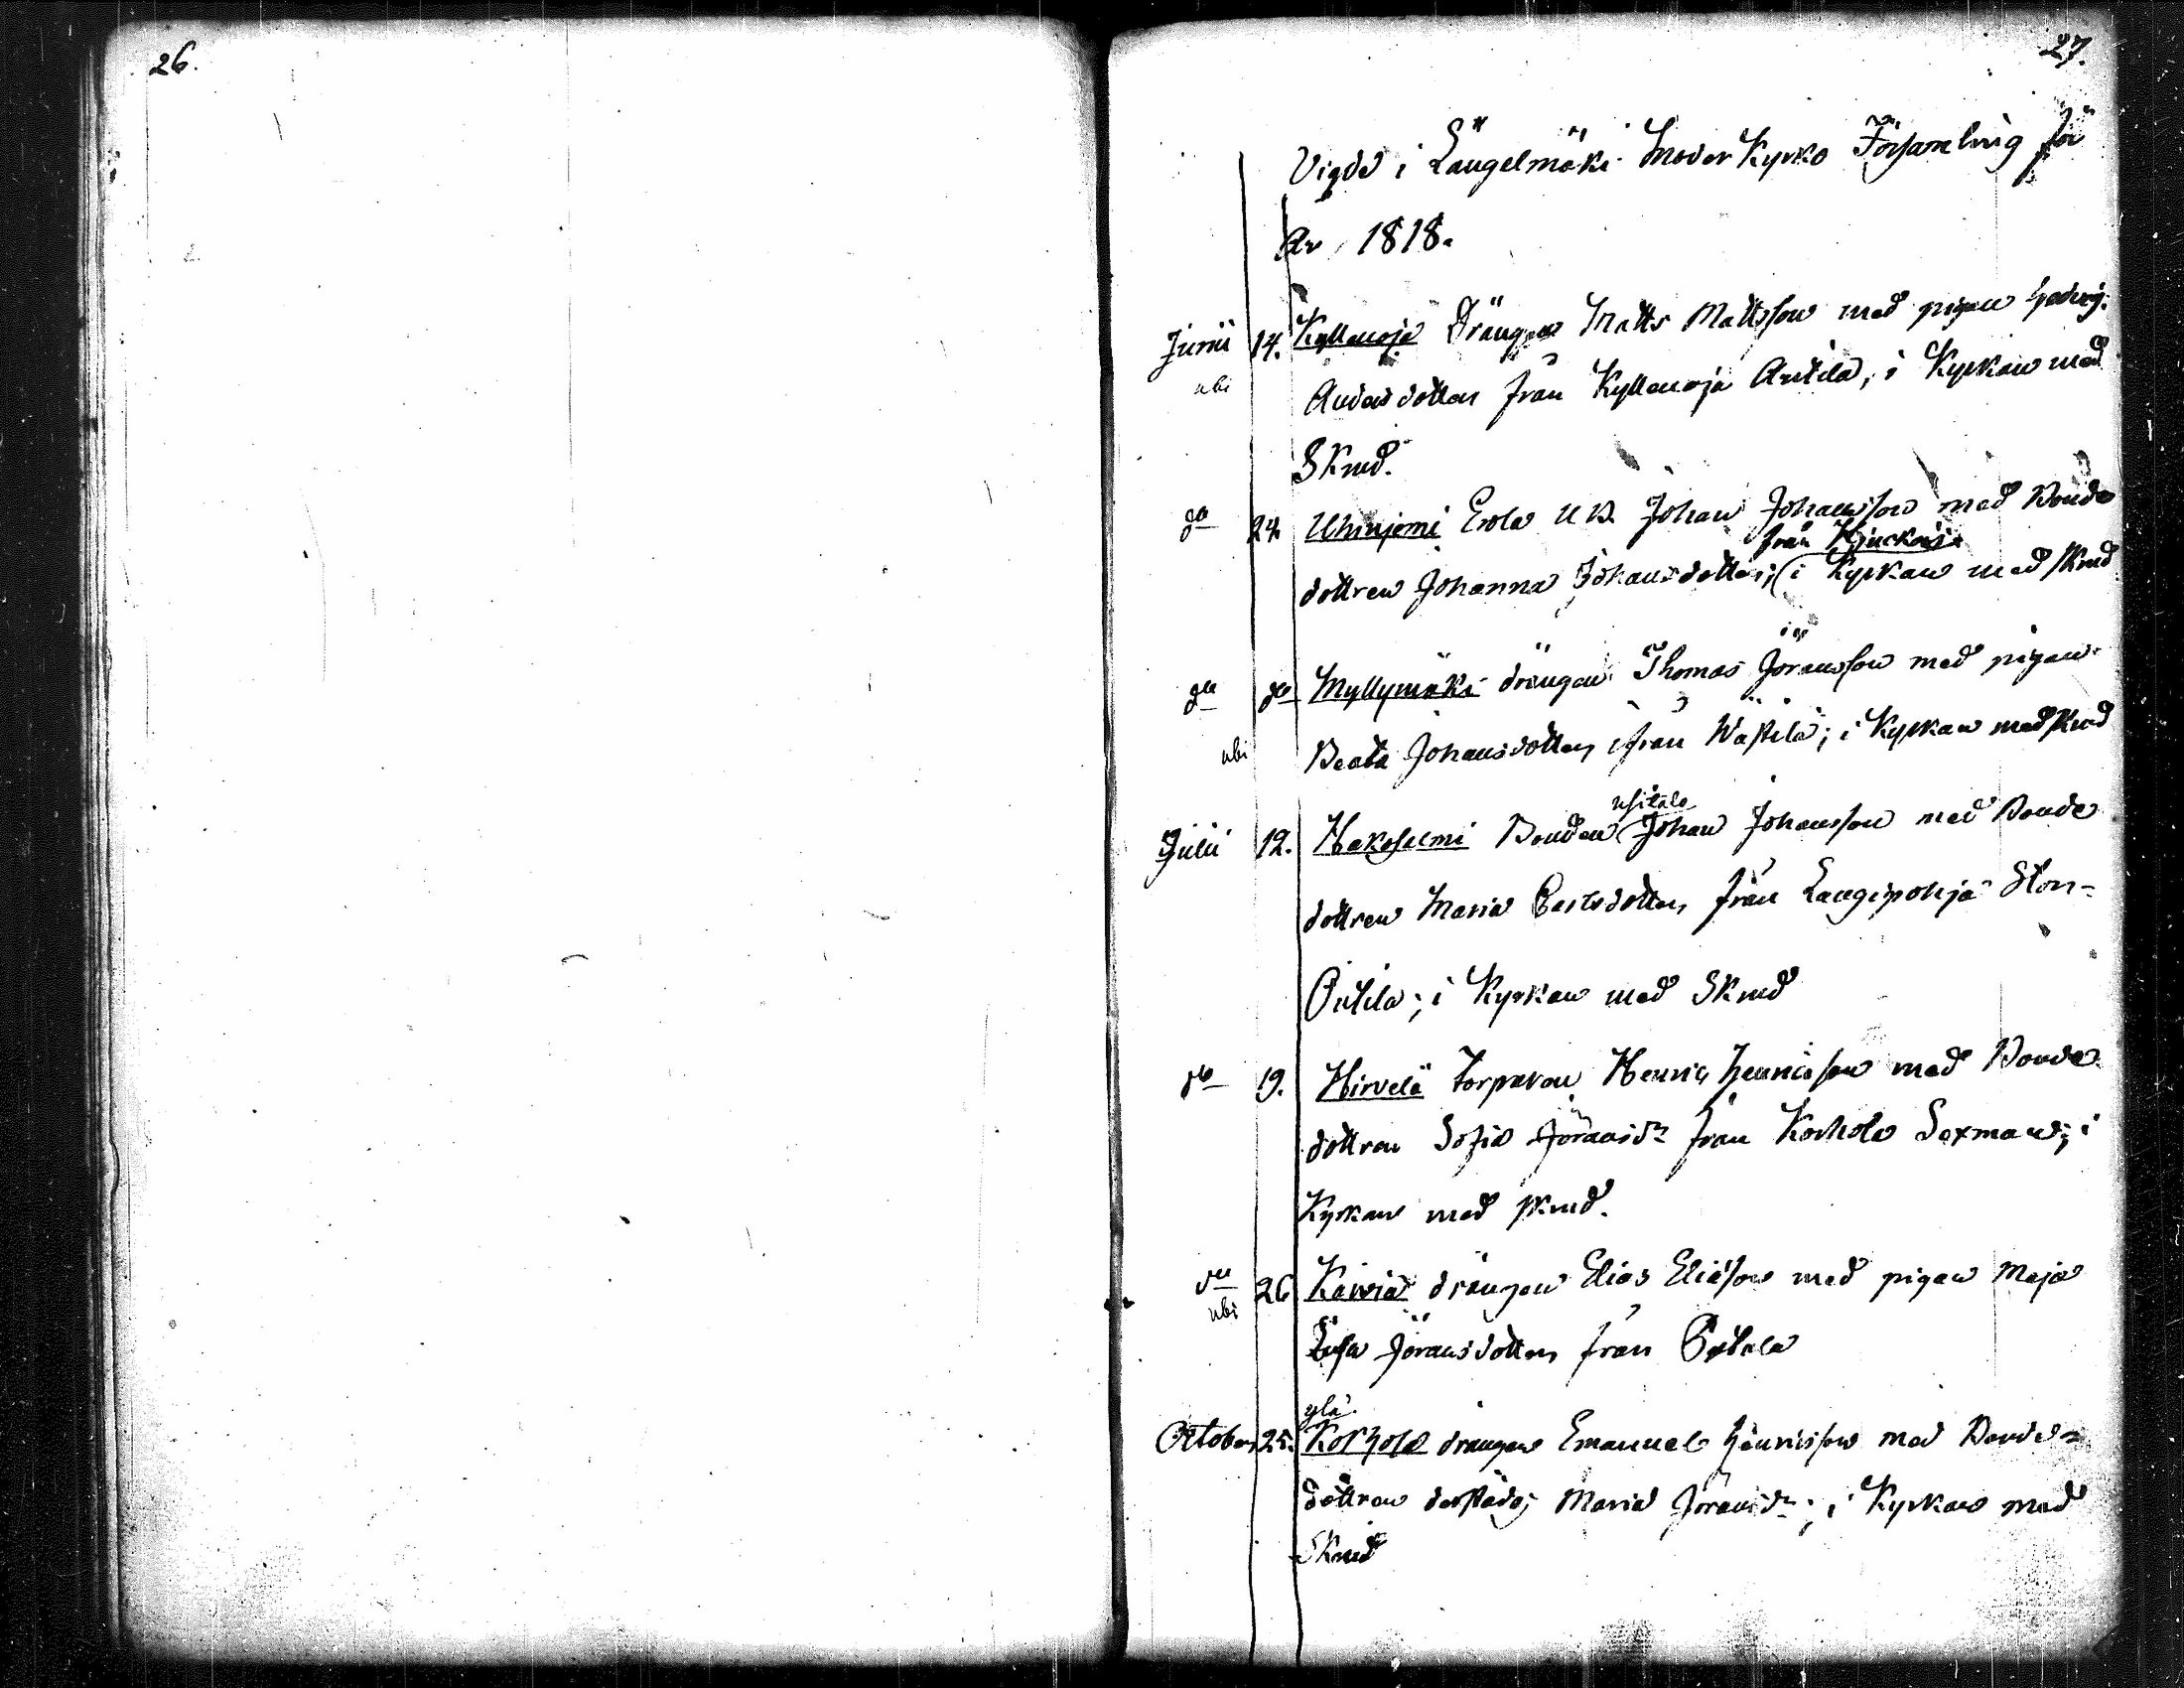 26.
27.
Vigde i Längelmäki Moder Kyrko Församling för
År 1818.
Junii 14. Kyllenoja Drängen Matts Mattsson med pigan Hedvig
ubi Andersdotter från Kyllenoja Anttila, i Kyrkan med
Skrud.
do 24. Uhinjemi Erola U.B. Johan Johansson med Bonde
från
dottren Johanna Johansdotter; i Kyrkan med skrud
do do Myllymäki drängen Thomas Jöransson med pigan
ubi Beata Johansdotter från Wästilä; i Kyrkan med skrud
usitalo
Julii 12. Hakosalmi Bonden Johan Johansson med Bonde
dottren Maria Carlsdotter från Längipohja Stor-
Ontila; i Kyrkan med Skrud
do 19. Hirvelä torparen Henric Henricsson med Bonde
dottren Sofia Jöransdr från Korhola Sexman; i
Kyrkan med skrud.
do 26 Kaivia drängen Elias Eliasson med pigan Maja
ubi Lisa Jöransdotter från
ylä
October 25. Korhola drängen Emanuel Henricsson med Bonde-
dottren derstädes Maria Jöransdr; i Kyrkan med
Skrud